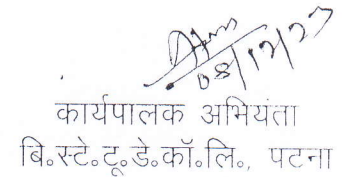 08/12/23
कार्यपालक अभियंता
बि॰स्टे॰टू॰डे॰कॉ॰लि॰, पटना